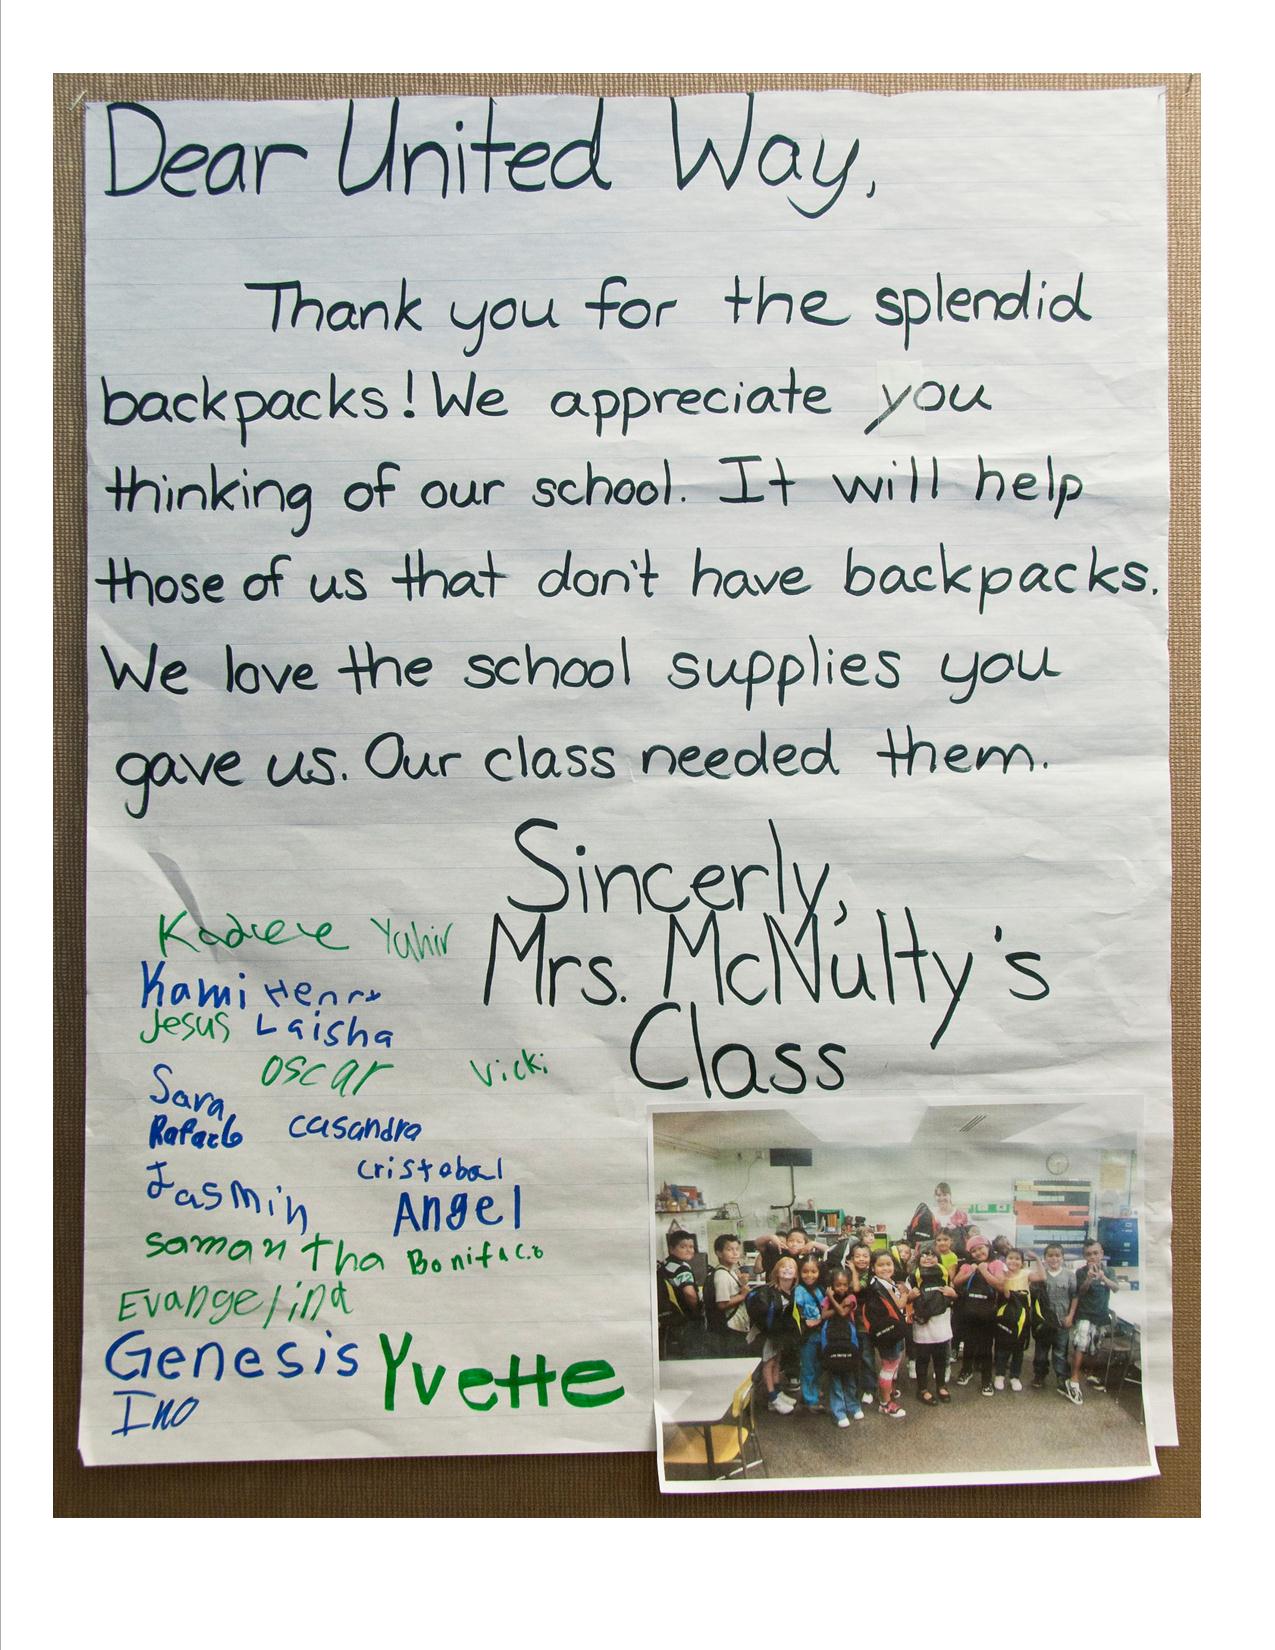 Dear United Way,
Thank you for the splendid
backpacks! We appreciate you
thinking of our school. It will help
those of us that don't have backpacks.
We love the school supplies you
gave us. Our class needed them.
Sincerly,
Mrs. McNulty's
Class
Yahir
Kami Henry
Jesus Laisha
Oscar Vicki
Sara
Rafaelo Casandra
Cristobal
Jasmin Angel
Samantha Bonifaco
Evangelina
Genesis Yvette
Ino